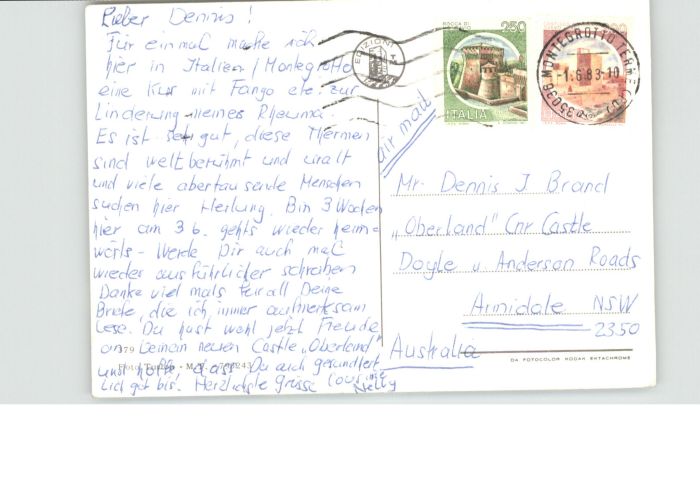 Lieber Dennis!
Für einmal mache ich
hier in Italien/Montegrotto
eine Kur mit Fango etc. zur
Linderung meines Rheuma.
Es ist sehr gut, diese Thermen
sind weltberühmt und uralt
und viele abertausende Menschen
suchen hier Heilung. Bin 3 Wochen
hier am 3 6. gehts wieder heim-
wärts - Werde Dir auch mal
wieder ausführlicher schreiben
Danke viel mals für all Deine
Briefe, die ich immer aufmerksam
lese. Du hast wohl jetzt Freude
an Deinem neuen Castle "Oberland"
und hoffe, dass Du auch gesundheit
lich gut bis. Herzlichste Grüsse
Nelly
379
243
EDIZIONI
ROCCA DI
250
ITALIA
MONTEGROTTO TERME (PD)
-1.6.83-10
35036
air mail
Mr. Dennis J Brand
"Oberland" Cnr Castle
Doyle u Anderson Roads
Armidale NSW
2350
Australia
DA FOTOCOLOR KODAK EKTACHROME